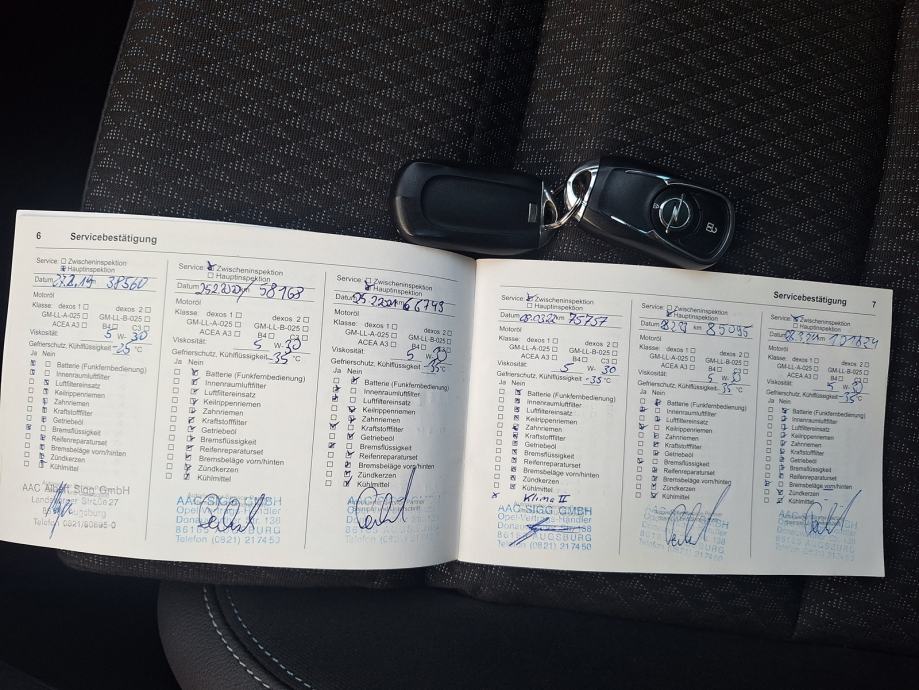 6 Servicebestätigung
Service: Zwischeninspektion
Hauptinspektion
Datum 27.2.19 38560
Motoröl
Klasse: dexos 1 dexos 2
GM-LL-A-025 GM-LL-B-025
ACEA A3 B4 C3
Viskosität: 5 W-30
Gefrierschutz, Kühlflüssigkeit -25 °C
Ja Nein
Batterie (Funkfernbedienung)
Innenraumluftfilter
Luftfiltereinsatz
Keilrippenriemen
Zahnriemen
Kraftstofffilter
Getriebeöl
Bremsflüssigkeit
Reifenreparaturset
Bremsbeläge vorn/hinten
Zündkerzen
Kühlmittel
AAC Sigg GmbH
Augsburg
Telefon
Service: Zwischeninspektion
Hauptinspektion
Datum 25.2.2020 km 58168
Motoröl
Klasse: dexos 1 dexos 2
GM-LL-A-025 GM-LL-B-025
ACEA A3 B4 C3
Viskosität: 5 W-30
Gefrierschutz, Kühlflüssigkeit -35 °C
Ja Nein
Batterie (Funkfernbedienung)
Innenraumluftfilter
Luftfiltereinsatz
Keilrippenriemen
Zahnriemen
Kraftstofffilter
Getriebeöl
Bremsflüssigkeit
Reifenreparaturset
Bremsbeläge vorn/hinten
Zündkerzen
Kühlmittel
AAC-SIGG GMBH
Opel-Vertrags-Händler
138
AUGSBURG
Telefon (0821) 217450
Service: Zwischeninspektion
Hauptinspektion
Datum km 66743
Motoröl
Klasse: dexos 1 dexos 2
GM-LL-A-025 GM-LL-B-025
ACEA A3 B4 C3
Viskosität: 5 W-30
Gefrierschutz, Kühlflüssigkeit -35 °C
Ja Nein
Batterie (Funkfernbedienung)
Innenraumluftfilter
Luftfiltereinsatz
Keilrippenriemen
Zahnriemen
Kraftstofffilter
Getriebeöl
Bremsflüssigkeit
Reifenreparaturset
Bremsbeläge vorn/hinten
Zündkerzen
Kühlmittel
Servicebestätigung 7
Service: Zwischeninspektion
Hauptinspektion
Datum 08.03.22 km 75757
Motoröl
Klasse: dexos 1 dexos 2
GM-LL-A-025 GM-LL-B-025
ACEA A3 B4 C3
Viskosität: 5 W-30
Gefrierschutz, Kühlflüssigkeit -35 °C
Ja Nein
Batterie (Funkfernbedienung)
Innenraumluftfilter
Luftfiltereinsatz
Keilrippenriemen
Zahnriemen
Kraftstofffilter
Getriebeöl
Bremsflüssigkeit
Reifenreparaturset
Bremsbeläge vorn/hinten
Zündkerzen
Kühlmittel
Klima II
AAC-SIGG GMBH
Opel-Vertrags-Händler
138
AUGSBURG
Telefon (0821) 217450
Service: Zwischeninspektion
Hauptinspektion
Datum km 85095
Motoröl
Klasse: dexos 1 dexos 2
GM-LL-A-025 GM-LL-B-025
ACEA A3 B4 C3
Viskosität: 5 W-30
Gefrierschutz, Kühlflüssigkeit -35 °C
Ja Nein
Batterie (Funkfernbedienung)
Innenraumluftfilter
Luftfiltereinsatz
Keilrippenriemen
Zahnriemen
Kraftstofffilter
Getriebeöl
Bremsflüssigkeit
Reifenreparaturset
Bremsbeläge vorn/hinten
Zündkerzen
Kühlmittel
138
AUGSBURG
Telefon (0821) 217450
Service: Zwischeninspektion
Hauptinspektion
Datum km
Motoröl
Klasse: dexos 1 dexos 2
GM-LL-A-025 GM-LL-B-025
ACEA A3 B4 C3
Viskosität: 5 W-30
Gefrierschutz, Kühlflüssigkeit -35 °C
Ja Nein
Batterie (Funkfernbedienung)
Innenraumluftfilter
Luftfiltereinsatz
Keilrippenriemen
Zahnriemen
Kraftstofffilter
Getriebeöl
Bremsflüssigkeit
Reifenreparaturset
Bremsbeläge vorn/hinten
Zündkerzen
Kühlmittel